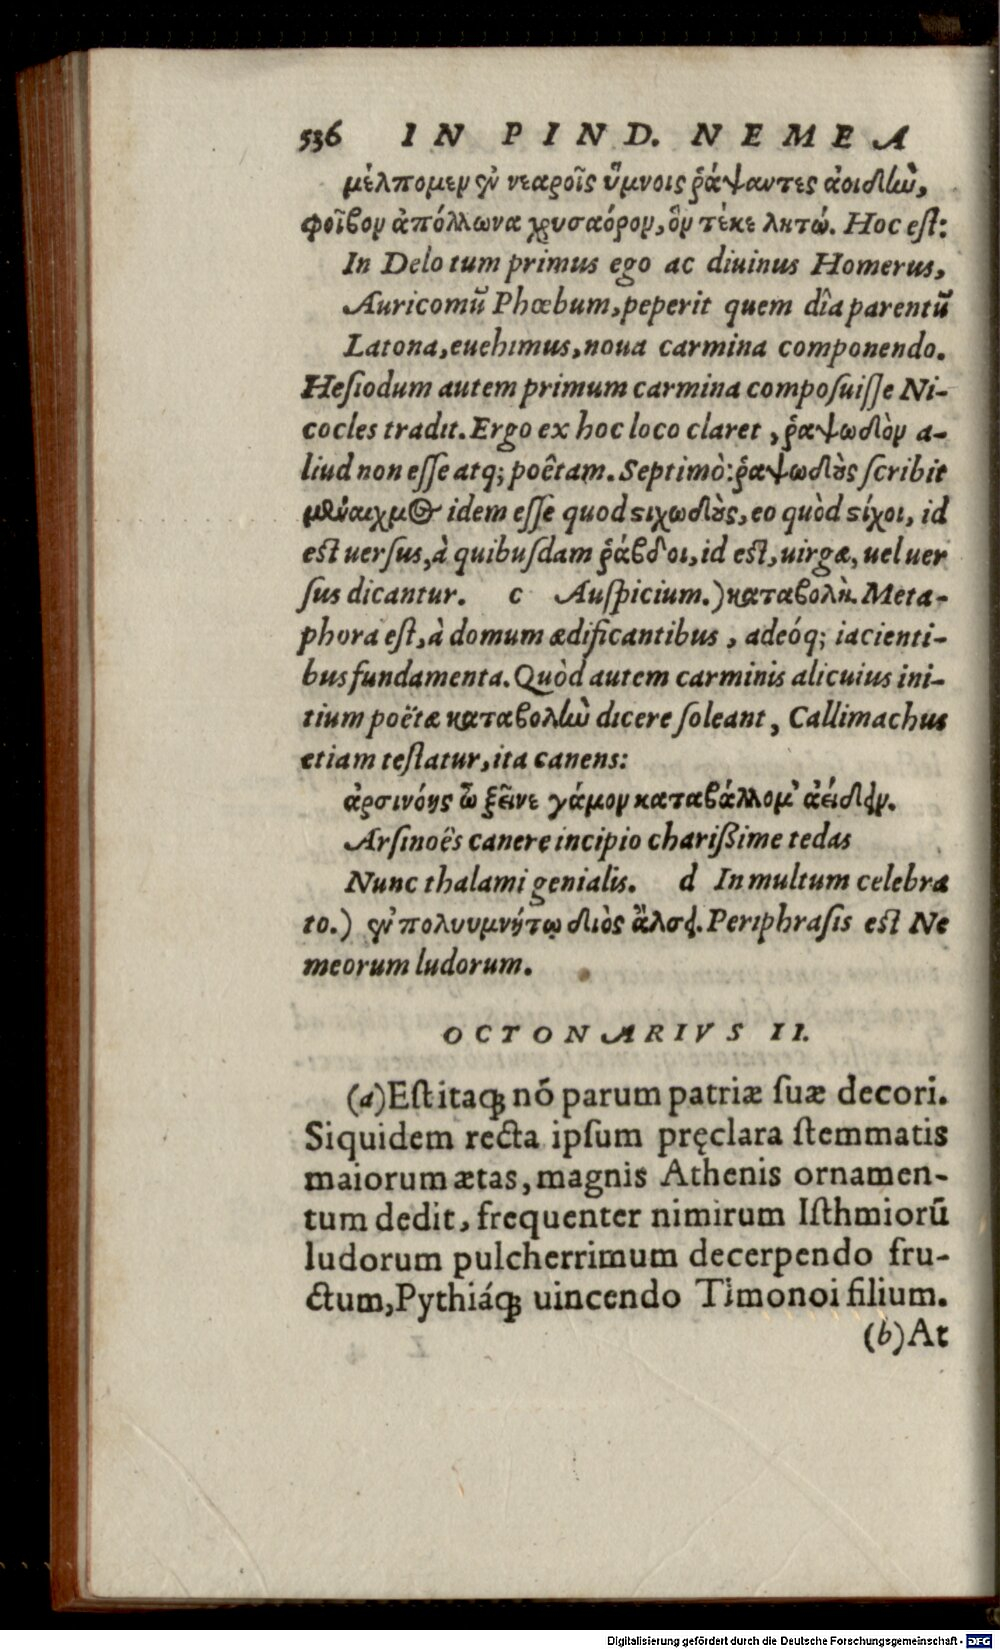 536 IN PIND. NEMEA
μέλπομεν ἐν νεαροῖς ὕμνοις ῥάψαντες ἀοιδὴν,
φοῖβον ἀπόλλωνα χρυσαόρον, ὃν τέκε λητώ. Hoc eſt:
In Delo tum primus ego ac diuinus Homerus,
Auricomũ Phœbum, peperit quem dîa parentũ
Latona, euehimus, noua carmina componendo.
Heſiodum autem primum carmina compoſuiſſe Ni-
cocles tradit. Ergo ex hoc loco claret, ῥαψωδὸν a-
liud non eſſe atq; poêtam. Septimò: ῥαψωδοὺς ſcribit
μεναιχμος idem eſſe quod ϛιχωδοὺς, eo quòd ϛίχοι, id
eſt uerſus, à quibuſdam ῥάβδοι, id eſt, uirgæ, uel uer
ſus dicantur. c Auſpicium.) καταβολὴ. Meta-
phora eſt, à domum ædificantibus, adeóq; iacienti-
bus fundamenta. Quòd autem carminis alicuius ini-
tium poëtæ καταβολὴν dicere ſoleant, Callimachus
etiam teſtatur, ita canens:
ἀρσινόης ὦ ξεῖνε γάμον καταβάλλομ' ἀείδειν.
Arſinoës canere incipio charißime tedas
Nunc thalami genialis. d In multum celebra
to.) ἐν πολυυμνήτῳ διὸς ἄλσει. Periphraſis eſt Ne
meorum ludorum.
OCTONARIVS II.
(a) Eſt itaq; nõ parum patriæ ſuæ decori.
Siquidem recta ipſum pręclara ſtemmatis
maiorum ætas, magnis Athenis ornamen-
tum dedit, frequenter nimirum Iſthmiorũ
ludorum pulcherrimum decerpendo fru-
ctum, Pythiáq; uincendo Timonoi filium.
(b) At
Digitalisierung gefördert durch die Deutsche Forschungsgemeinschaft - DFG